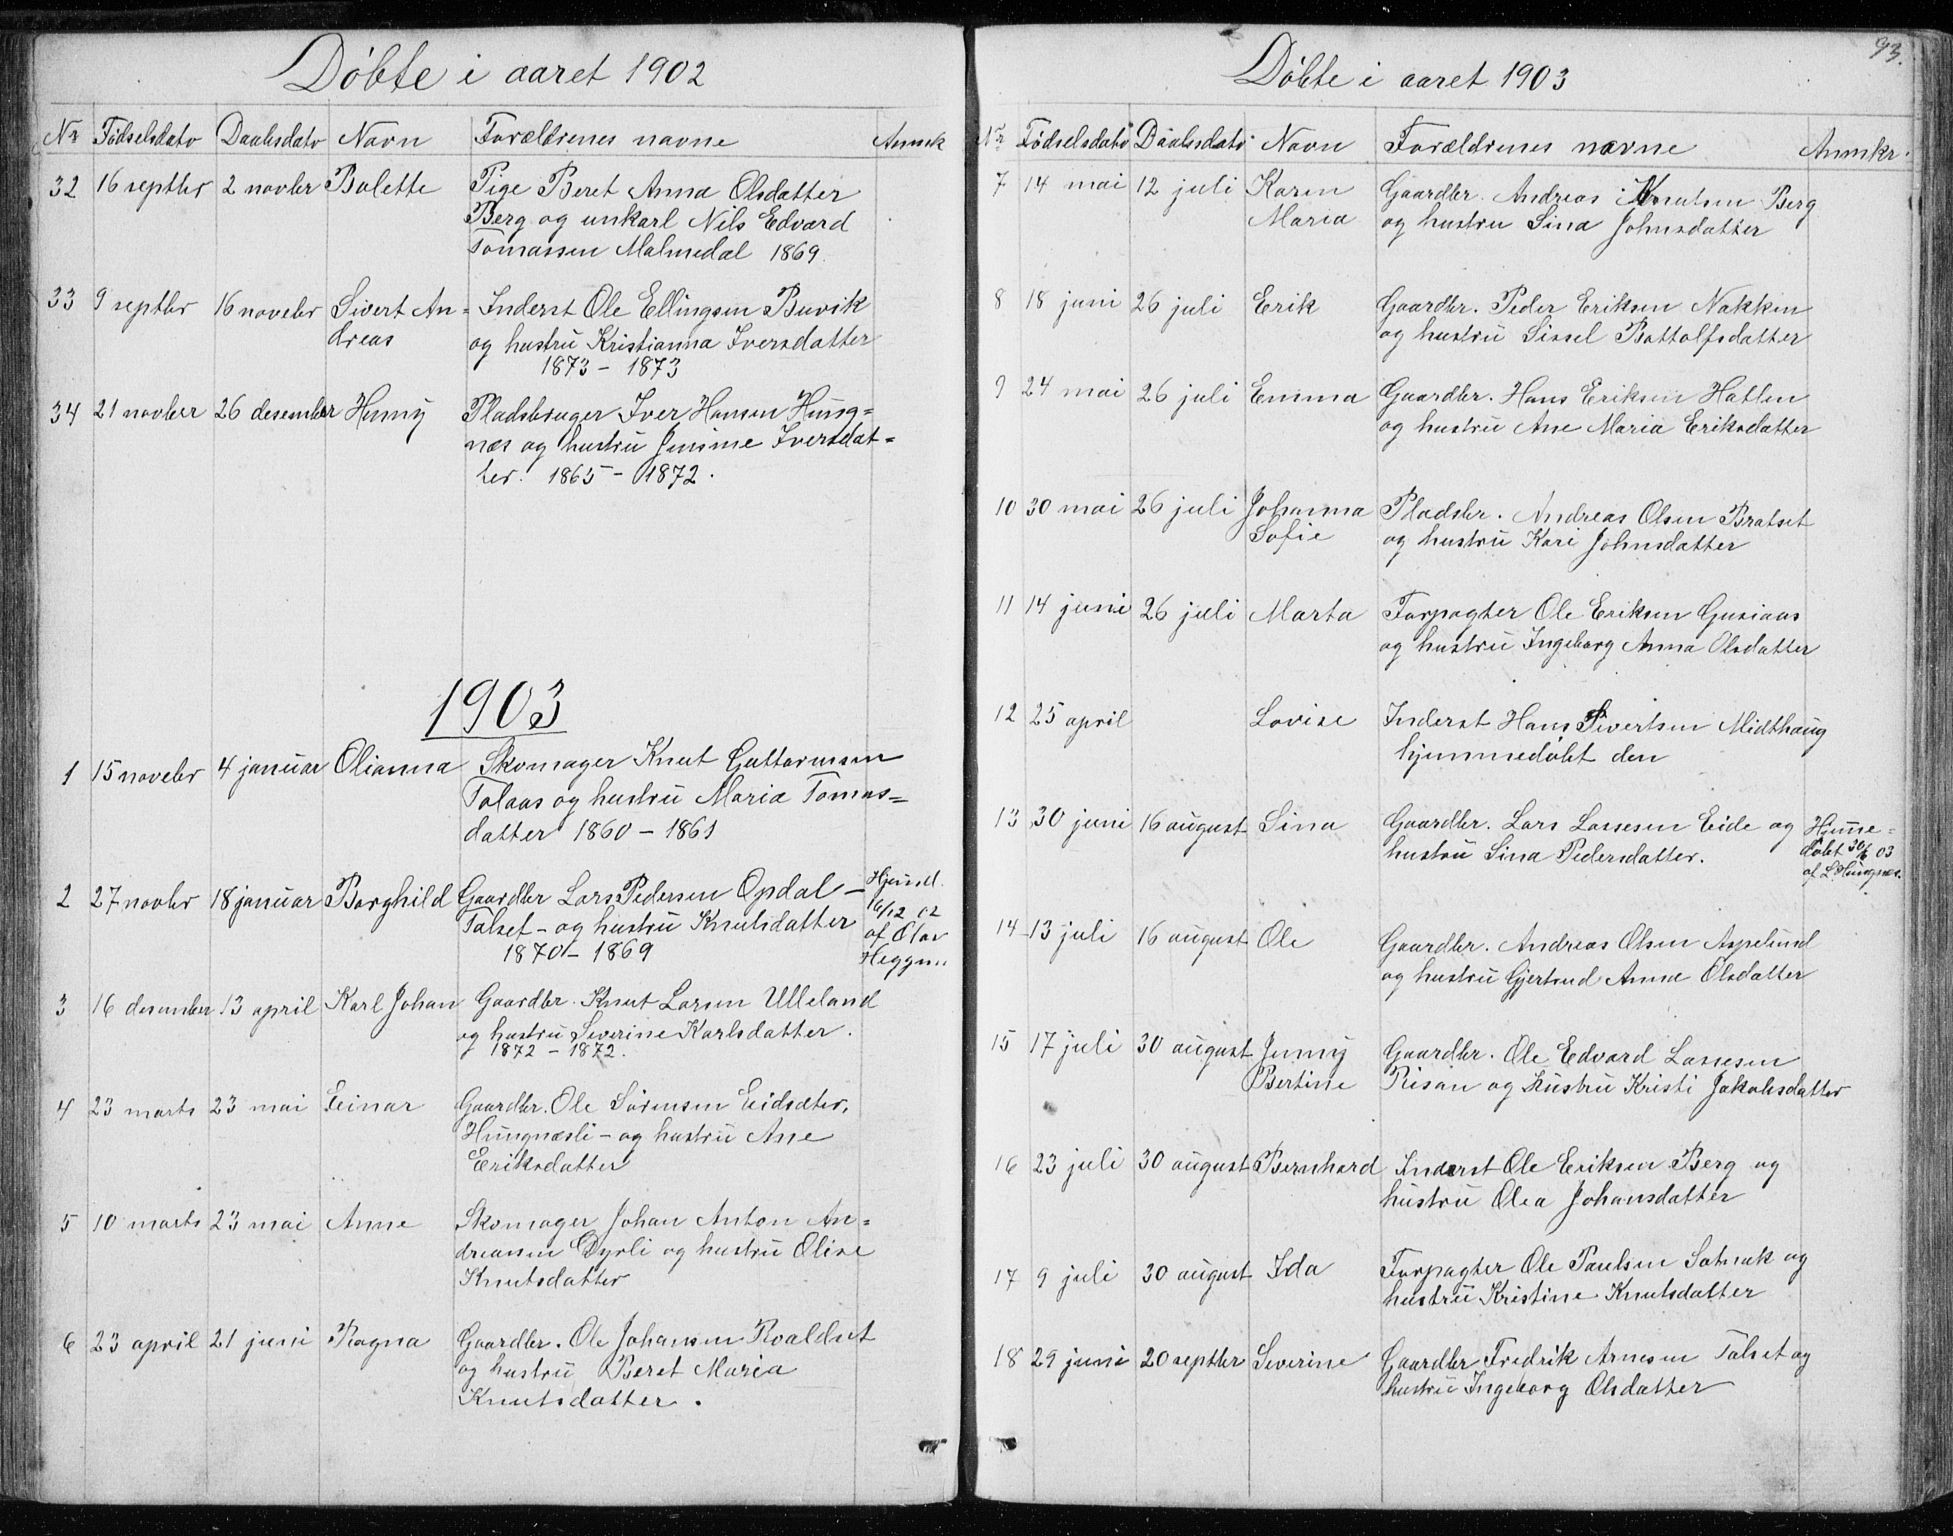 Døbte i aaret 1902
Nr Fødselsdato Daabsdato Navn Forældrenes navne Anmk
32 16 septbr 2 novbr Bolette Pige Beret Anna Olsdatter
Berg og unkarl Nils Edvard
Tomassen Malmedal 1869.
33 9 septbr 16 novebr Sivert An= Inderst Ole Ellingsen Buvik
dreas og hustru Kristianna Iversdatter
1873 - 1873
34 21 novber 26 desember Henny Pladsbruger Iver Hansen Hung=
næs og hustru Jensine Iversdat=
ter. 1865 - 1872.
1903
1 15 novebr 4 januar Olianna Skomager Knut Guttormsen
Tolaas og hustru Maria Tomas=
datter 1860 - 1861
2 27 novbr 18 januar Borghild Gaardbr Lars Pedersen Opdal -
Talset - og hustru Knutsdatter
1870 - 1869
Hjemd.
6/12 02
af Olav
Heggem
3 16 desember 13 april Karl Johan Gaardbr. Knut Larsen Ulleland
og hustru Severine Karlsdatter.
1872 - 1872.
4 23 marts 23 mai Einar Gaardbr. Ole Sørensen Eidsæter,
Hungnæsli - og hustru Ane
Eriksdatter
5 10 marts 23 mai Anne Skomager Johan Anton An=
dreasen Dyrli og hustru Olise
Knutsdatter
6 23 april 21 juni Ragna Gaardbr. Ole Johansen Roaldset
og hustru Beret Maria
Knutsdatter.
93.
Døbte i aaret 1903
Nr Fødselsdato Daabsdato Navn Forældrenes navne Anmkr.
7 14 mai 12 juli Karen Gaardbr. Andreas Knutsen Berg
Maria og hustru Sina Johnsdatter
8 18 juni 26 juli Erik Gaardbr. Peder Eriksen Nakken
og hustru Sissel Bottolfsdatter
9 24 mai 26 juli Emma Gaardbr. Hans Eriksen Hatlen
og hustru Ane Maria Eriksdatter
10 30 mai 26 juli Johanna Pladsbr. Andreas Olsen Bratset
Sofie og hustru Kari Johnsdatter
11 14 juni 26 juli Marta Forpagter Ole Eriksen Gusiaas
og hustru Ingeborg Anna Olsdatter
12 25 april Lovise Inderst Hans Sivertsen Midthaug
hjemmedøbt den
13 30 juni 16 august Sina Gaardbr. Lars Lassesen Eide og
hustru Sina Pedersdatter.
Hjemme=
døbt 30/6 03
af L. Hungnes.
14 13 juli 16 august Ole Gaardbr. Andreas Olsen Aspelund
og hustru Gjertrud Anna Olsdatter
15 17 juli 30 august Jenny Gaardbr. Ole Edvard Lassesen
Bertine Risan og hustru Kristi Jakobsdatter
16 23 juli 30 august Bernhard Inderst Ole Eriksen Berg og
hustru Olea Johansdatter
17 9 juli 30 august Ida Forpagter Ole Paulsen Sotnak og
hustru Kristine Knutsdatter
18 29 juni 20 septber Severine Gaardbr Fredrik Arnesen Talset og
hustru Ingeborg Olsdatter